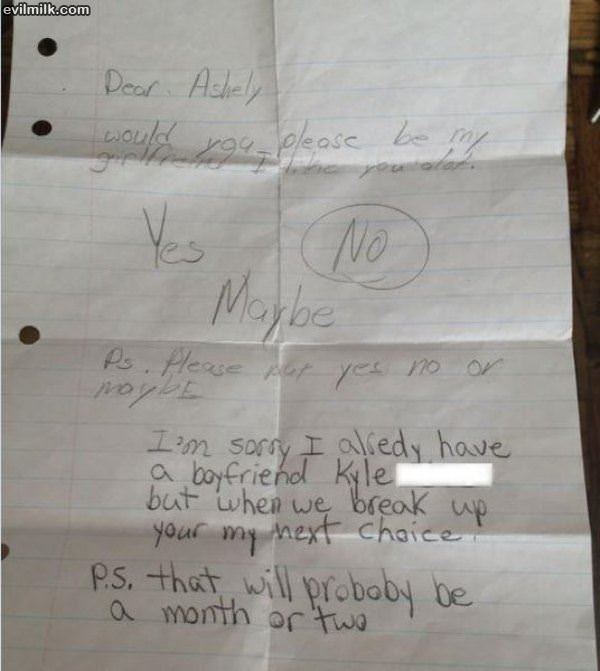 evilmilk.com
Dear. Ashely
would you please be my
girlfriend I like you alot.
Yes NO
Maybe
Ps. Please put yes no or
maybE
I'm sorry I alredy have
a boyfriend Kyle
but when we break up
your my next choice.
P.S. that will proboby be
a month or two